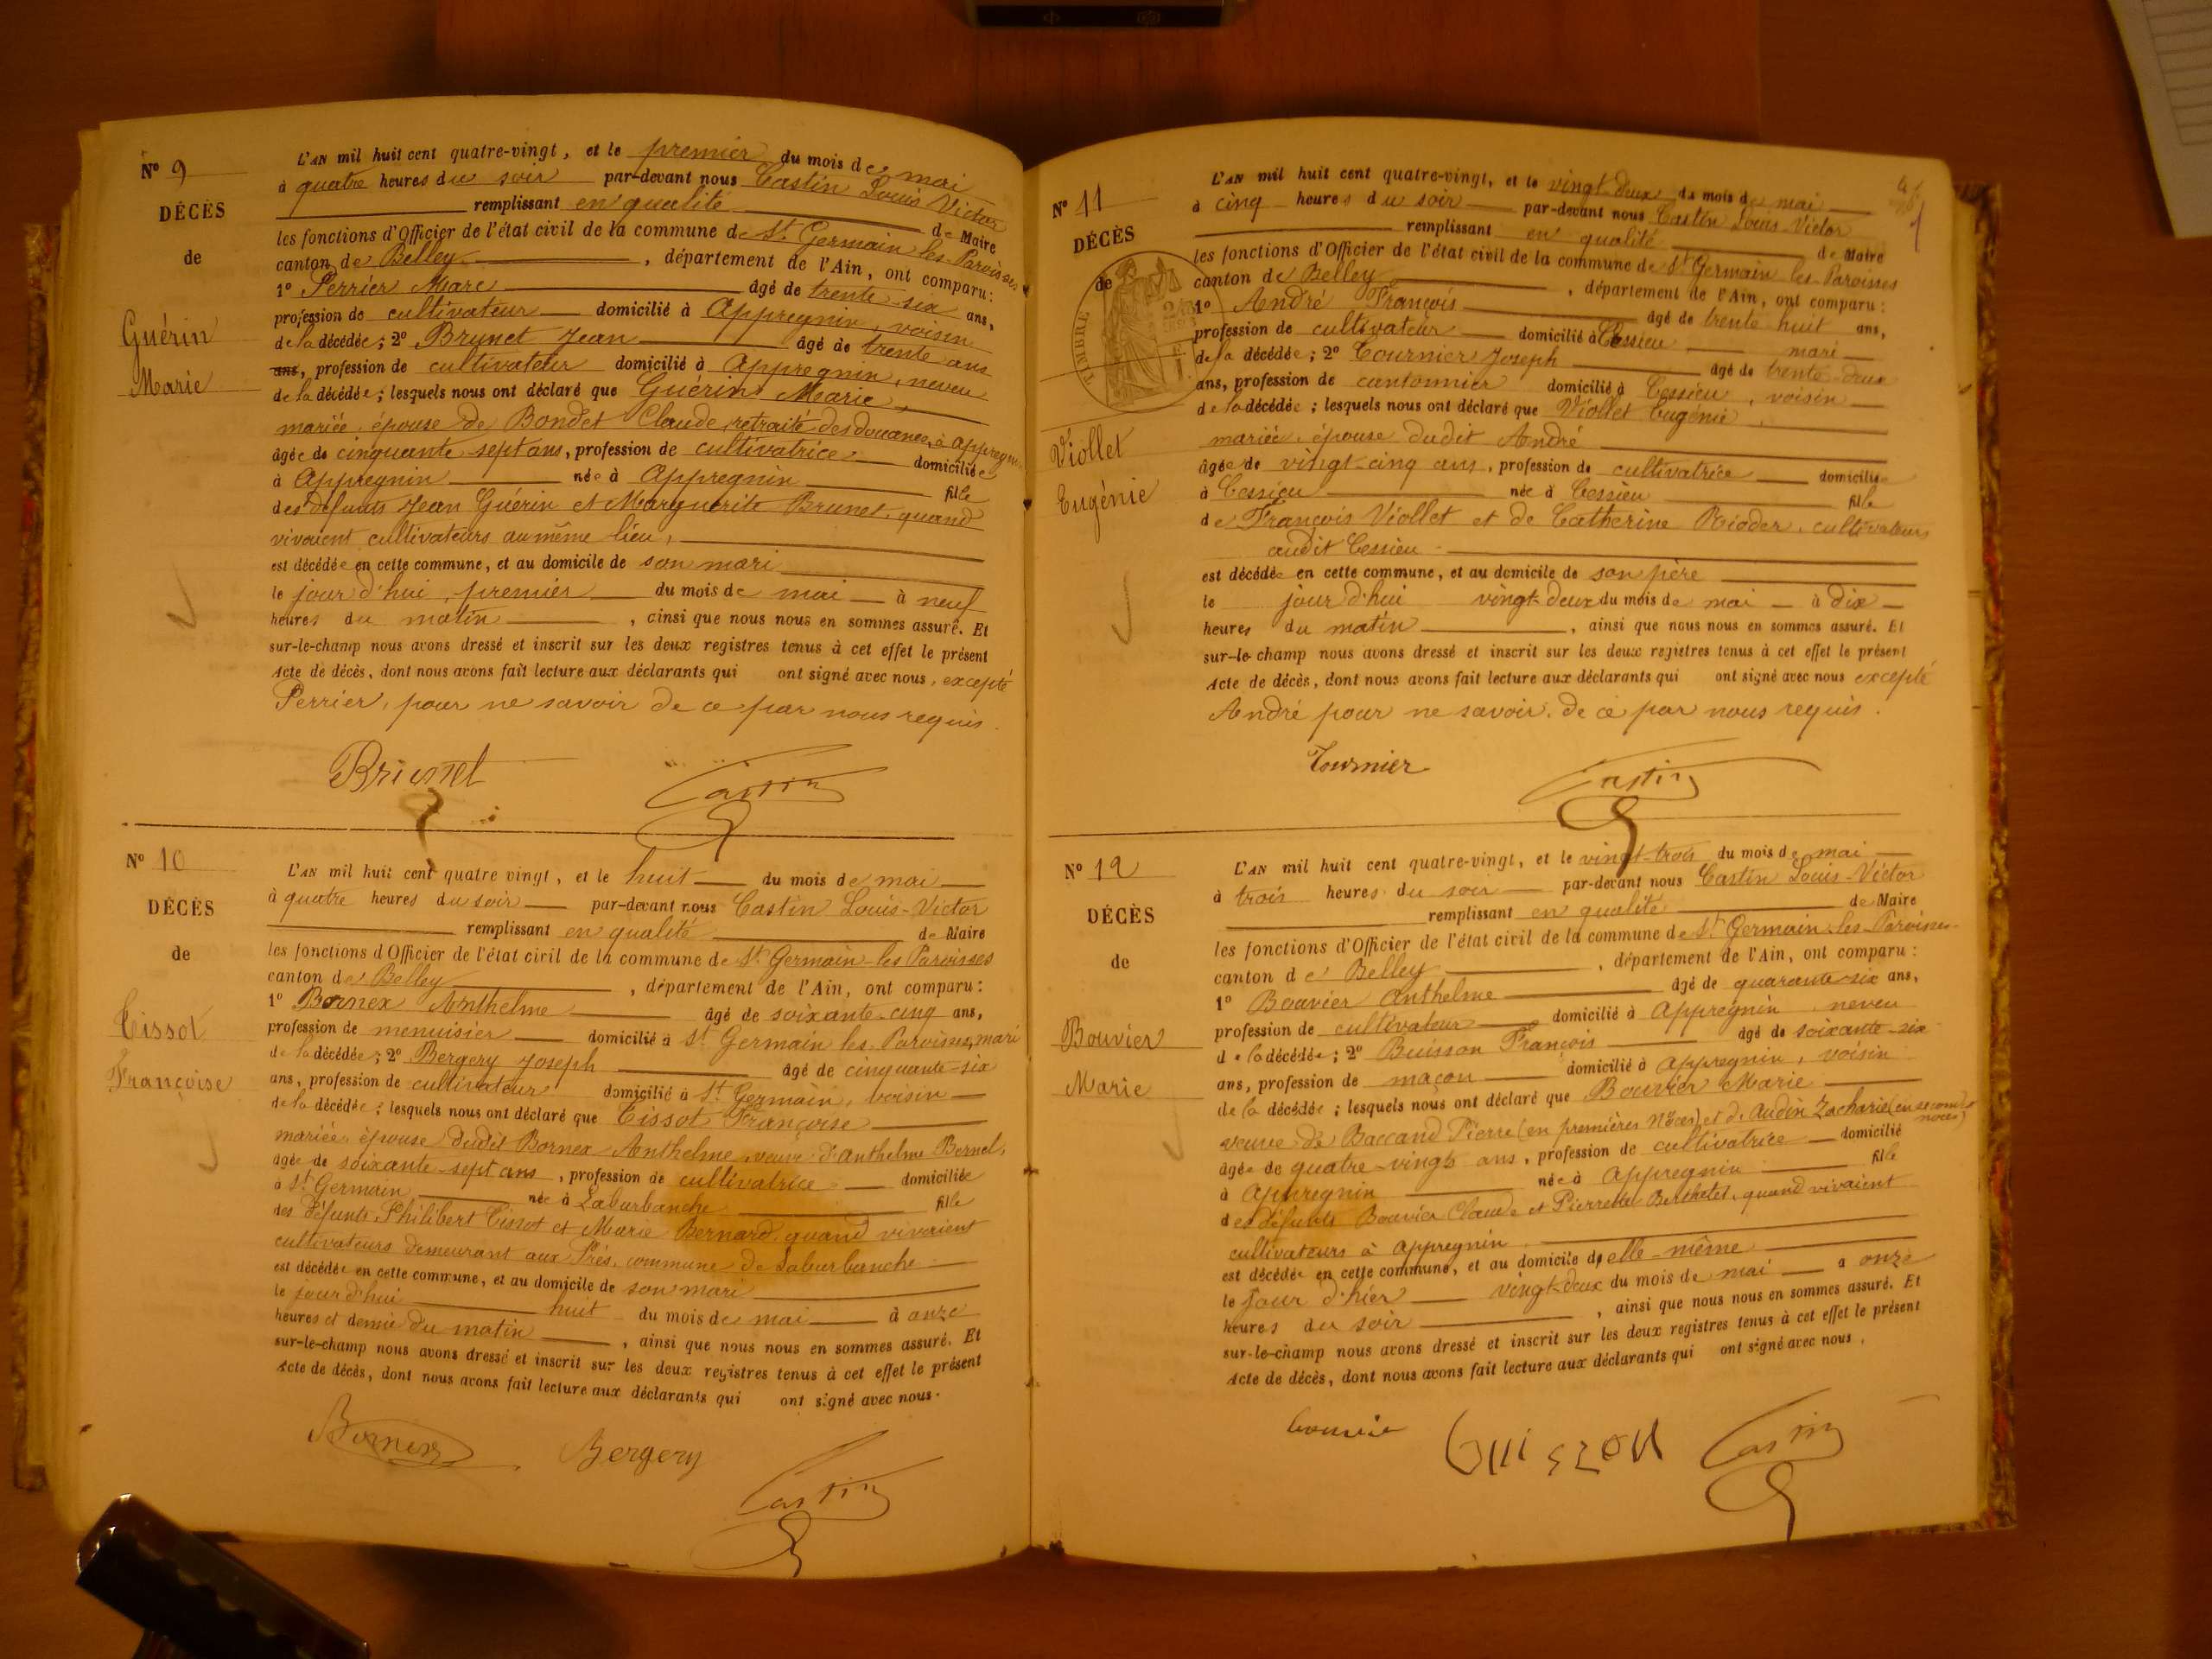 Nº 9
DÉCÈS
de
Guérin
Marie
L'AN mil huit cent quatre-vingt, et le premier du mois de mai
à quatre heures du soir par-devant nous Castin Louis Victor
remplissant en qualité de Maire
les fonctions d'Officier de l'état civil de la commune de St Germain les Paroisses
canton de Belley, département de l'Ain, ont comparu:
1º Perrier Marc âgé de trente-six ans,
profession de cultivateur domicilié à Appregnin, voisin
de la décédée; 2º Brunet Jean âgé de trente ans
ans, profession de cultivateur domicilié à Appregnin, neveu
de la décédée; lesquels nous ont déclaré que Guérin Marie,
mariée, épouse de Bondet Claude, retraité des douanes, à Appregnin
âgée de cinquante-sept ans, profession de cultivatrice domiciliée
à Appregnin née à Appregnin fille
des défunts Jean Guérin et Marguerite Brunet, quand
vivaient cultivateurs au même lieu,
est décédée en cette commune, et au domicile de son mari
le jour d'hui, premier du mois de mai à neuf
heures du matin, ainsi que nous nous en sommes assuré. Et
sur-le-champ nous avons dressé et inscrit sur les deux registres tenus à cet effet le présent
Acte de décès, dont nous avons fait lecture aux déclarants qui ont signé avec nous, excepté
Perrier, pour ne savoir de ce par nous requis.
Brunet Castin
Nº 10
DÉCÈS
de
Tissot
Françoise
L'AN mil huit cent quatre vingt, et le huit du mois de mai
à quatre heures du soir par-devant nous Castin Louis-Victor
remplissant en qualité de Maire
les fonctions d'Officier de l'état civil de la commune de St Germain-les Paroisses
canton de Belley, département de l'Ain, ont comparu:
1º Bornex Anthelme âgé de soixante-cinq ans,
profession de menuisier domicilié à St Germain les Paroisses, mari
de la décédée; 2º Bergery Joseph âgé de cinquante-six
ans, profession de cultivateur domicilié à St Germain, voisin
de la décédée; lesquels nous ont déclaré que Tissot Françoise
mariée, épouse dudit Bornex Anthelme, veuve d'Anthelme Bernel,
âgée de soixante-sept ans, profession de cultivatrice domiciliée
à St Germain née à Laburbanche fille
des défunts Philibert Tissot et Marie Bernard, quand vivaient
cultivateurs demeurant aux Prés, commune de Laburbanche
est décédée en cette commune, et au domicile de son mari
le jour d'hui huit du mois de mai à onze
heures et demie du matin, ainsi que nous nous en sommes assuré. Et
sur-le-champ nous avons dressé et inscrit sur les deux registres tenus à cet effet le présent
Acte de décès, dont nous avons fait lecture aux déclarants qui ont signé avec nous.
Bornex Bergery Castin
Nº 11
DÉCÈS
de
TIMBRE
Viollet
Eugénie
L'AN mil huit cent quatre-vingt, et le vingt-deux du mois de mai
à cinq heures du soir par-devant nous Castin Louis-Victor
remplissant en qualité de Maire
les fonctions d'Officier de l'état civil de la commune de St Germain les Paroisses
canton de Belley, département de l'Ain, ont comparu:
1º André François âgé de trente huit ans,
profession de cultivateur domicilié à Cessieu mari
de la décédée; 2º Tournier Joseph âgé de trente-deux
ans, profession de cantonnier domicilié à Cessieu, voisin
de la décédée; lesquels nous ont déclaré que Viollet Eugénie,
mariée, épouse dudit André
âgée de vingt-cinq ans, profession de cultivatrice domiciliée
à Cessieu née à Cessieu fille
de François Viollet et de Catherine cultivateurs
audit Cessieu
est décédée en cette commune, et au domicile de son père
le jour d'hui vingt-deux du mois de mai à dix
heures du matin, ainsi que nous nous en sommes assuré. Et
sur-le champ nous avons dressé et inscrit sur les deux registres tenus à cet effet le présent
Acte de décès, dont nous avons fait lecture aux déclarants qui ont signé avec nous excepté
André pour ne savoir, de ce par nous requis.
Tournier Castin
Nº 12
DÉCÈS
de
Bouvier
Marie
L'AN mil huit cent quatre-vingt, et le vingt-trois du mois de mai
à trois heures du soir par-devant nous Castin Louis-Victor
remplissant en qualité de Maire
les fonctions d'Officier de l'état civil de la commune de St Germain-les-Paroisses
canton de Belley, département de l'Ain, ont comparu:
1º Bouvier Anthelme âgé de quarante-six ans,
profession de cultivateur domicilié à Appregnin neveu
de la décédée; 2º Buisson François âgé de soixante-six
ans, profession de maçon domicilié à Appregnin, voisin
de la décédée; lesquels nous ont déclaré que Bouvier Marie
veuve de Baccand Pierre (en premières Nôces) et d'Audin Zacharie (en secondes noces)
âgée de quatre-vingts ans, profession de cultivatrice domicilié
à Appregnin née à Appregnin fille
des défunts Bouvier Claude et Pierrette Berthelet, quand vivaient
cultivateurs à Appregnin
est décédée en cette commune, et au domicile d'elle-même
le jour d'hier vingt-deux du mois de mai à onze
heures du soir, ainsi que nous nous en sommes assuré. Et
sur-le-champ nous avons dressé et inscrit sur les deux registres tenus à cet effet le présent
Acte de décès, dont nous avons fait lecture aux déclarants qui ont signé avec nous.
bouvier Castin